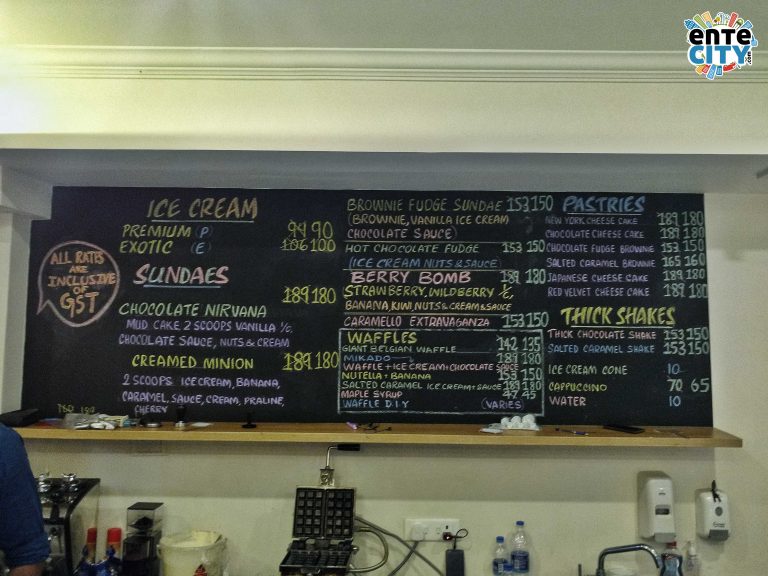 ente
CITY
.com
ICE CREAM
PREMIUM (P) 94 90
EXOTIC (E) 106 100
ALL RATES
ARE
INCLUSIVE
OF
GST
SUNDAES
189 180
CHOCOLATE NIRVANA
MUD CAKE 2 SCOOPS VANILLA I/C,
CHOCOLATE SAUCE, NUTS & CREAM
CREAMED MINION 189 180
2 SCOOPS ICECREAM, BANANA,
CARAMEL, SAUCE, CREAM, PRALINE,
CHERRY
BROWNIE FUDGE SUNDAE 153 150
(BROWNIE, VANILLA ICE CREAM
CHOCOLATE SAUCE)
HOT CHOCOLATE FUDGE 153 150
(ICE CREAM NUTS & SAUCE)
BERRY BOMB 189 180
STRAWBERRY, WILDBERRY I/C,
BANANA, KIWI, NUTS & CREAM & SAUCE
CARAMELLO EXTRAVAGANZA 153 150
WAFFLES
GIANT BELGIAN WAFFLE 142 135
MIKADO
WAFFLE + ICE CREAM + CHOCOLATE SAUCE 189 180
NUTELLA + BANANA 153 150
SALTED CARAMEL ICE CREAM + SAUCE 189 180
MAPLE SYRUP 47 45
WAFFLE D.I.Y (VARIES)
PASTRIES
NEW YORK CHEESE CAKE 189 180
CHOCOLATE CHEESE CAKE 189 180
CHOCOLATE FUDGE BROWNIE 153 150
SALTED CARAMEL BROWNIE 165 160
JAPANESE CHEESE CAKE 189 180
RED VELVET CHEESE CAKE 189 180
THICK SHAKES
THICK CHOCOLATE SHAKE 153 150
SALTED CARAMEL SHAKE 153 150
ICE CREAM CONE 10
CAPPUCCINO 70 65
WATER 10